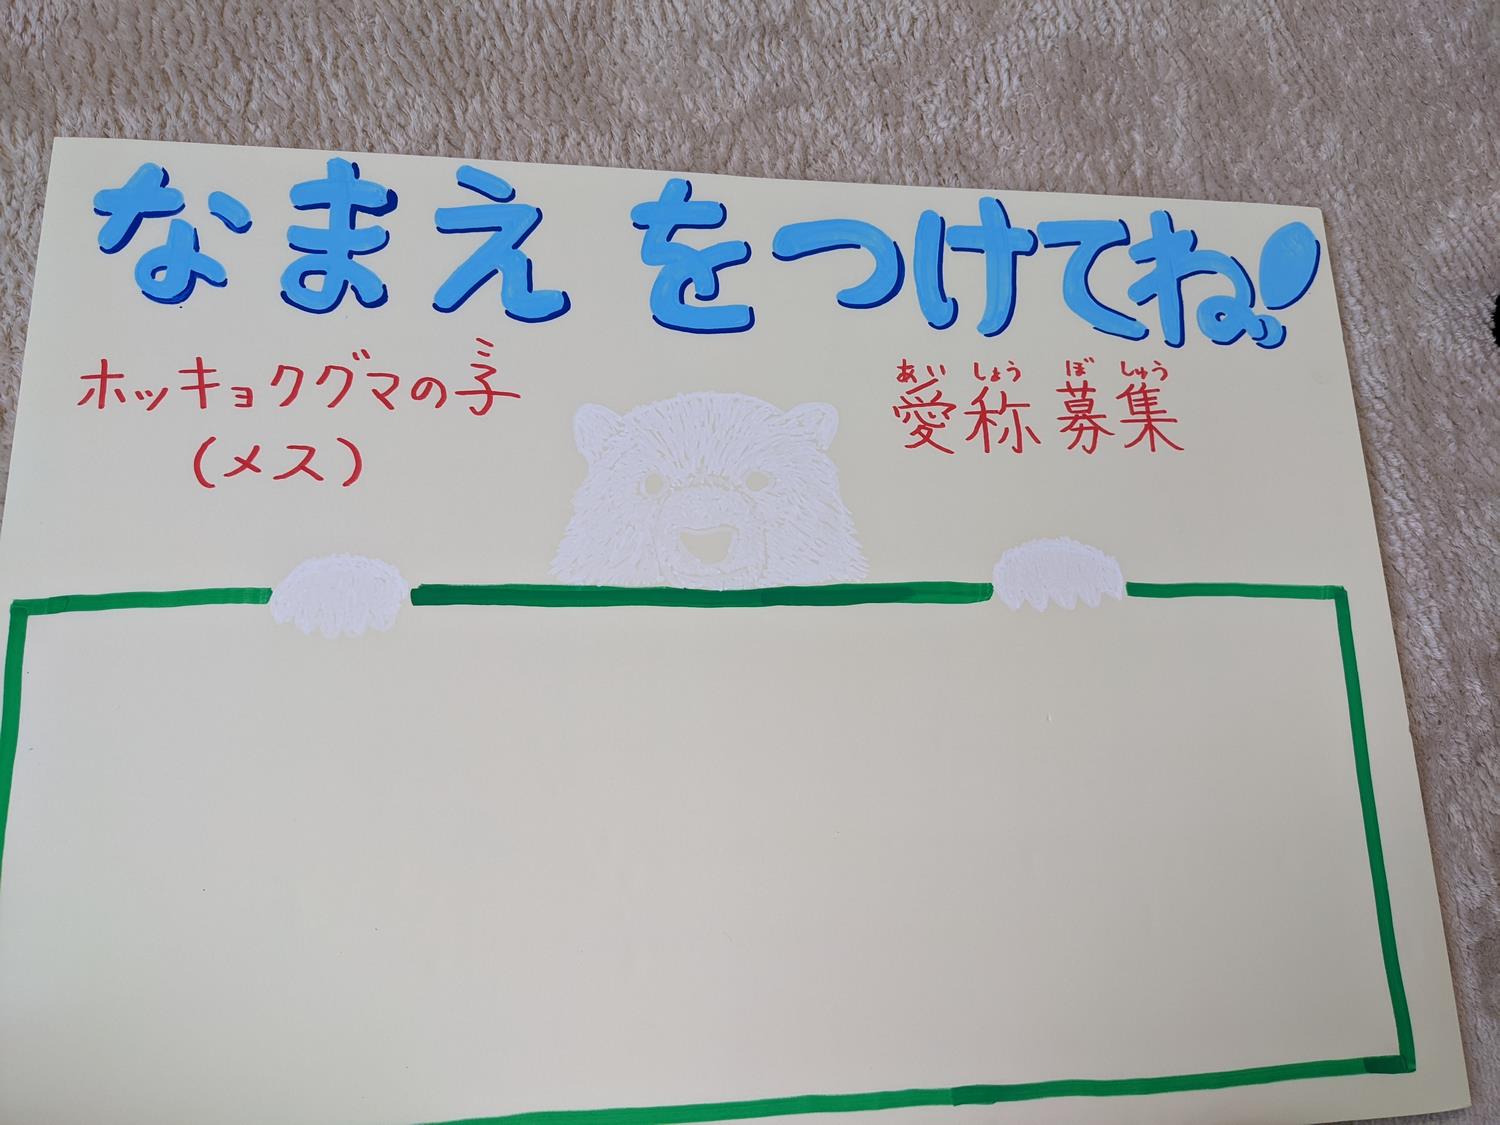 なまえをつけてね!
ホッキョクグマの子
(メス)
あいしょうぼしゅう
愛称募集